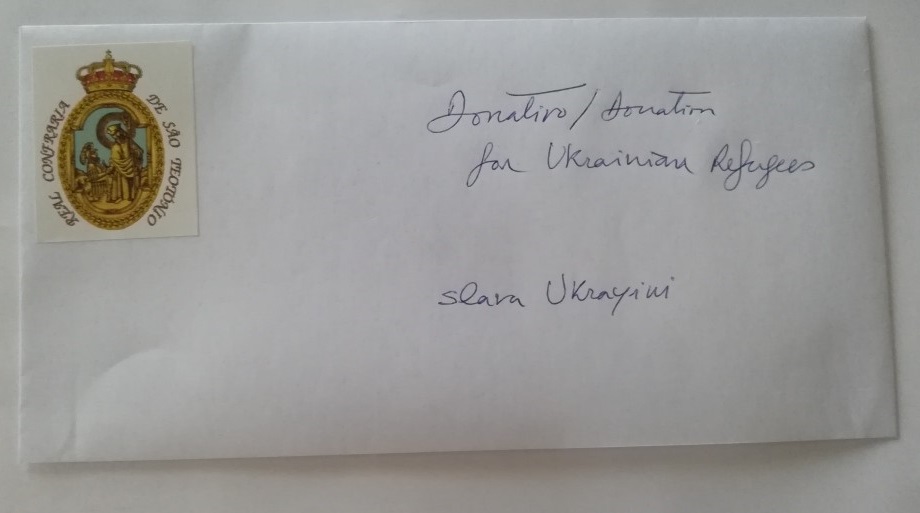 REAL CONFRARIA DE SÃO TEOTONIO
Donativo / Donation
for Ukrainian Refugees
Slava Ukrayini